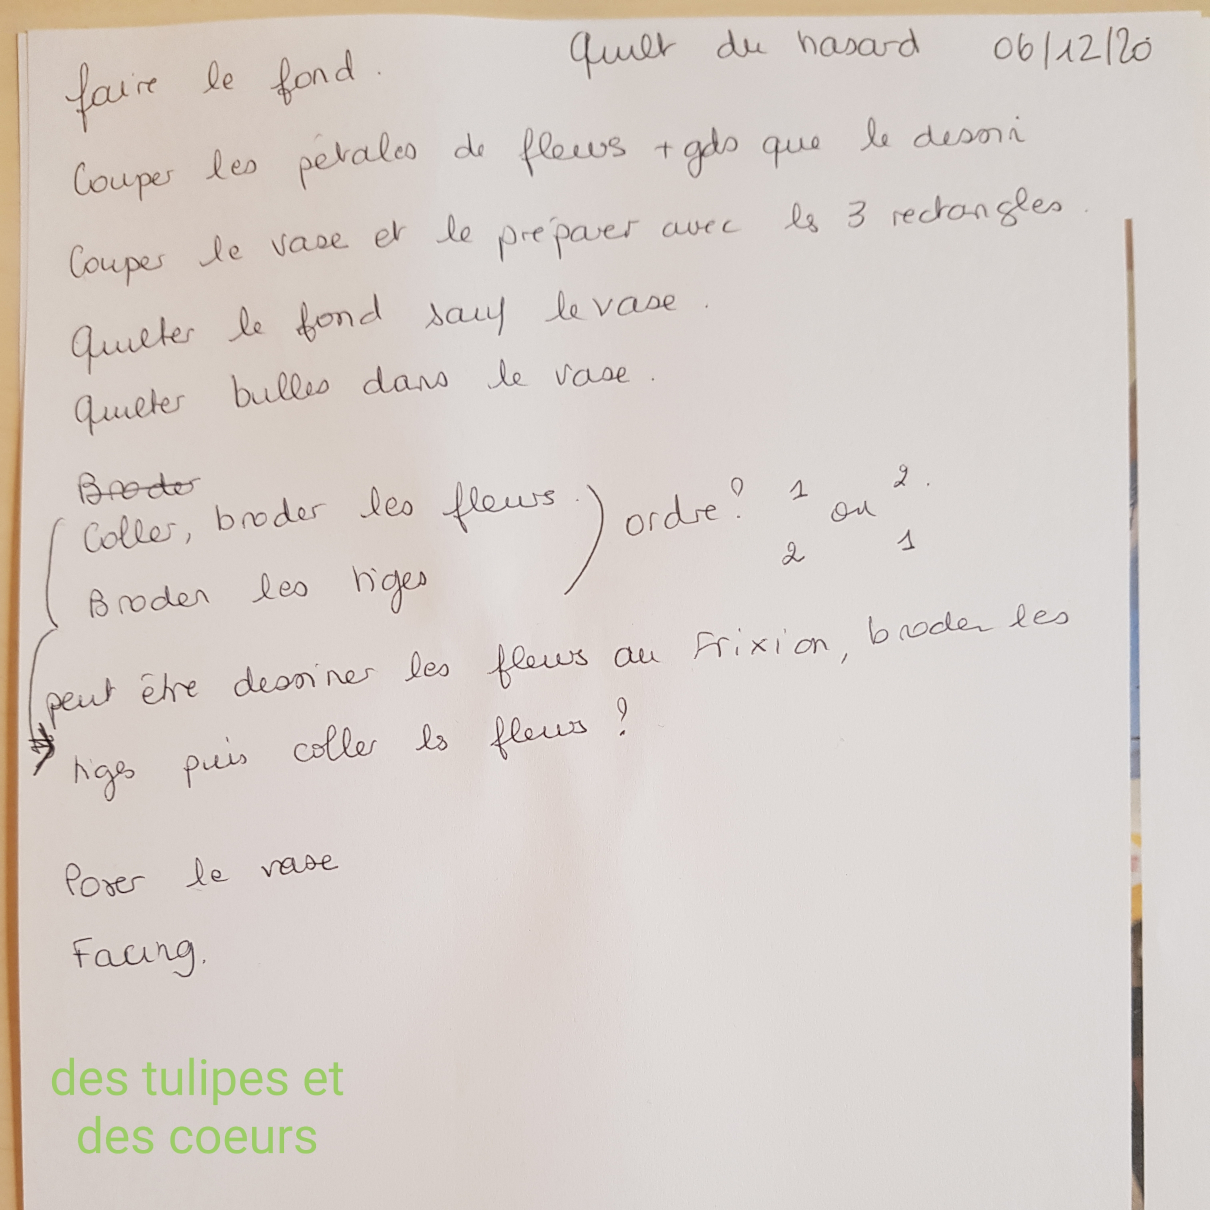 Quilt du hasard 06/12/20
faire le fond.
Couper les pétales de fleurs + gds que le dessin
Couper le vase et le préparer avec ls 3 rectangles.
Quilter le fond sauf le vase.
Quilter bulles dans le vase.
Broder
Coller, broder les fleurs. ) ordre? 1 ou 2.
Broder les tiges 2 1
peut être dessiner les fleurs au Frixion, broder les
tiges puis coller ls fleurs ?
Poser le vase
Facing.
des tulipes et
des coeurs